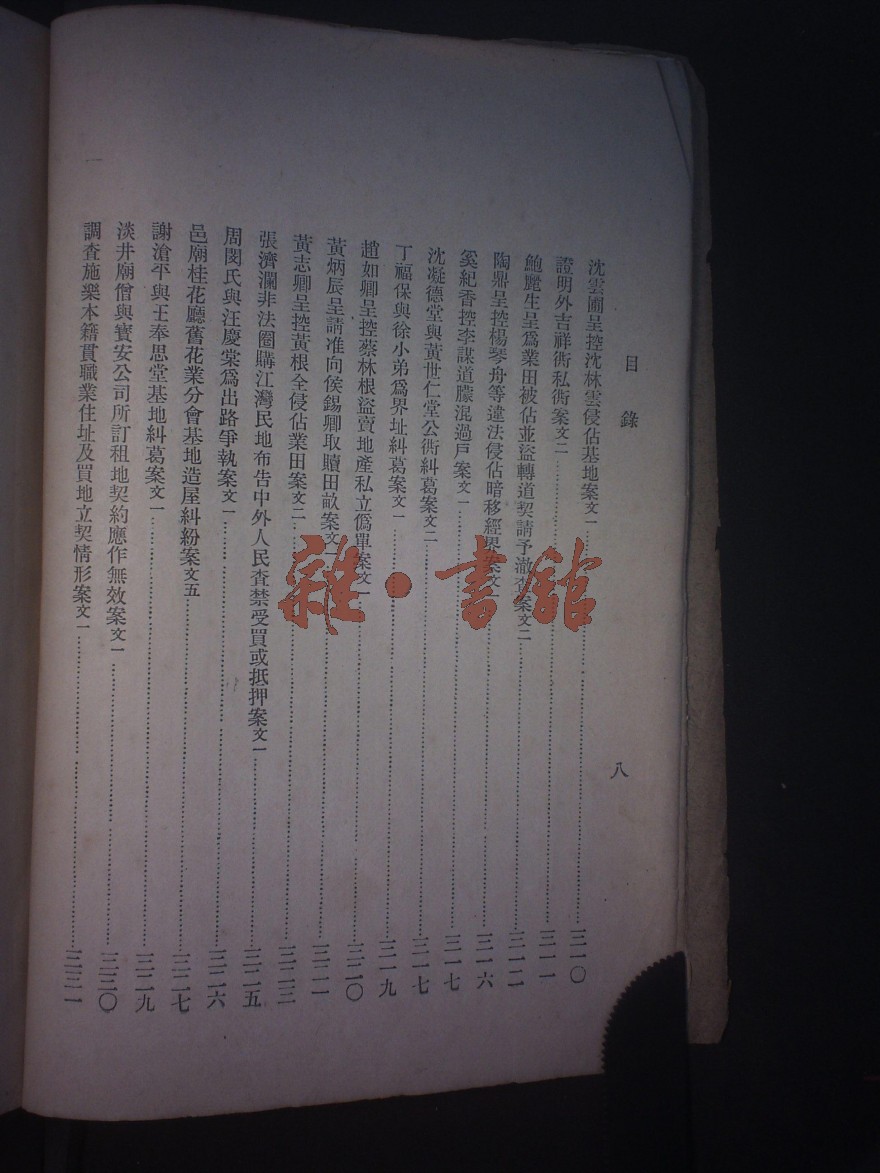 目錄
八
沈雲圃呈控沈林雲侵佔基地案文一……三一〇
證明外吉祥衖私衖案文二……三一一
鮑麗生呈爲業田被佔並盜轉道契請予澈查案文二……三一二
陶鼎呈控楊琴舟等違法侵佔暗移經界案文一……三一六
奚紀香控李謀道朦混過戶案文一……三一七
沈凝德堂與黃世仁堂公衖糾葛案文二……三一七
丁福保與徐小弟爲界址糾葛案文一……三一九
趙如卿呈控蔡林根盜賣地產私立僞單案文一……三二〇
黃炳辰呈請准向侯錫卿取贖田畝案文一……三二一
黃志卿呈控黃根全侵佔業田案文二……三二三
張濟瀾非法圈購江灣民地布告中外人民查禁受買或抵押案文一……三二五
周閔氏與汪慶棠爲出路爭執案文一……三二六
邑廟桂花廳舊花業分會基地造屋糾紛案文五……三二七
謝滄平與王奉思堂基地糾葛案文一……三二九
淡井廟僧與寶安公司所訂租地契約應作無效案文一……三三〇
調查施樂本籍貫職業住址及買地立契情形案文一……三三一
雜·書館